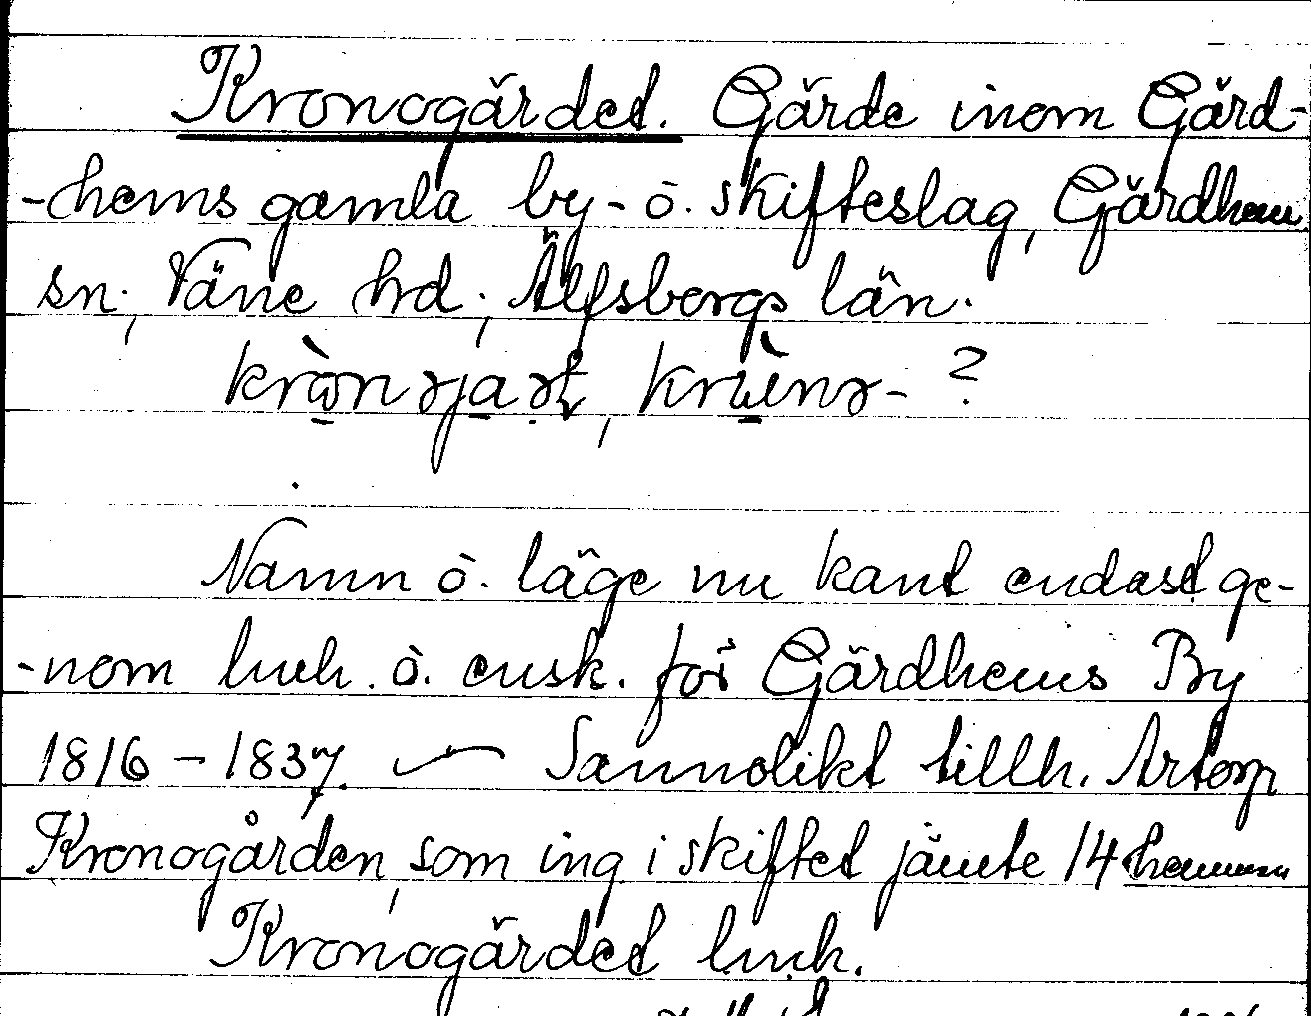 Kronogärdet. Gärde inom Gärd-
-hems gamla by- o. skifteslag, Gärdhem
sn; Väne hd; Älfsborgs län.
Namn o. läge nu känt endast ge-
-nom lmh. o. ensk. för Gärdhems By
1816 – 1837. — Sannolikt tillh. Artorp
Kronogården, som ing i skiftet jämte 14 hemman
Kronogärdet lmh.